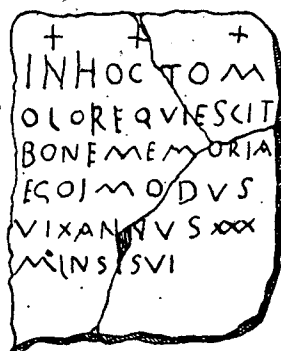 + + +
INHOCTOM
OLOREQVIESCIT
BONEMEMORIA
EGOIMODVS
VIXANNVSXXX
MINSISVI